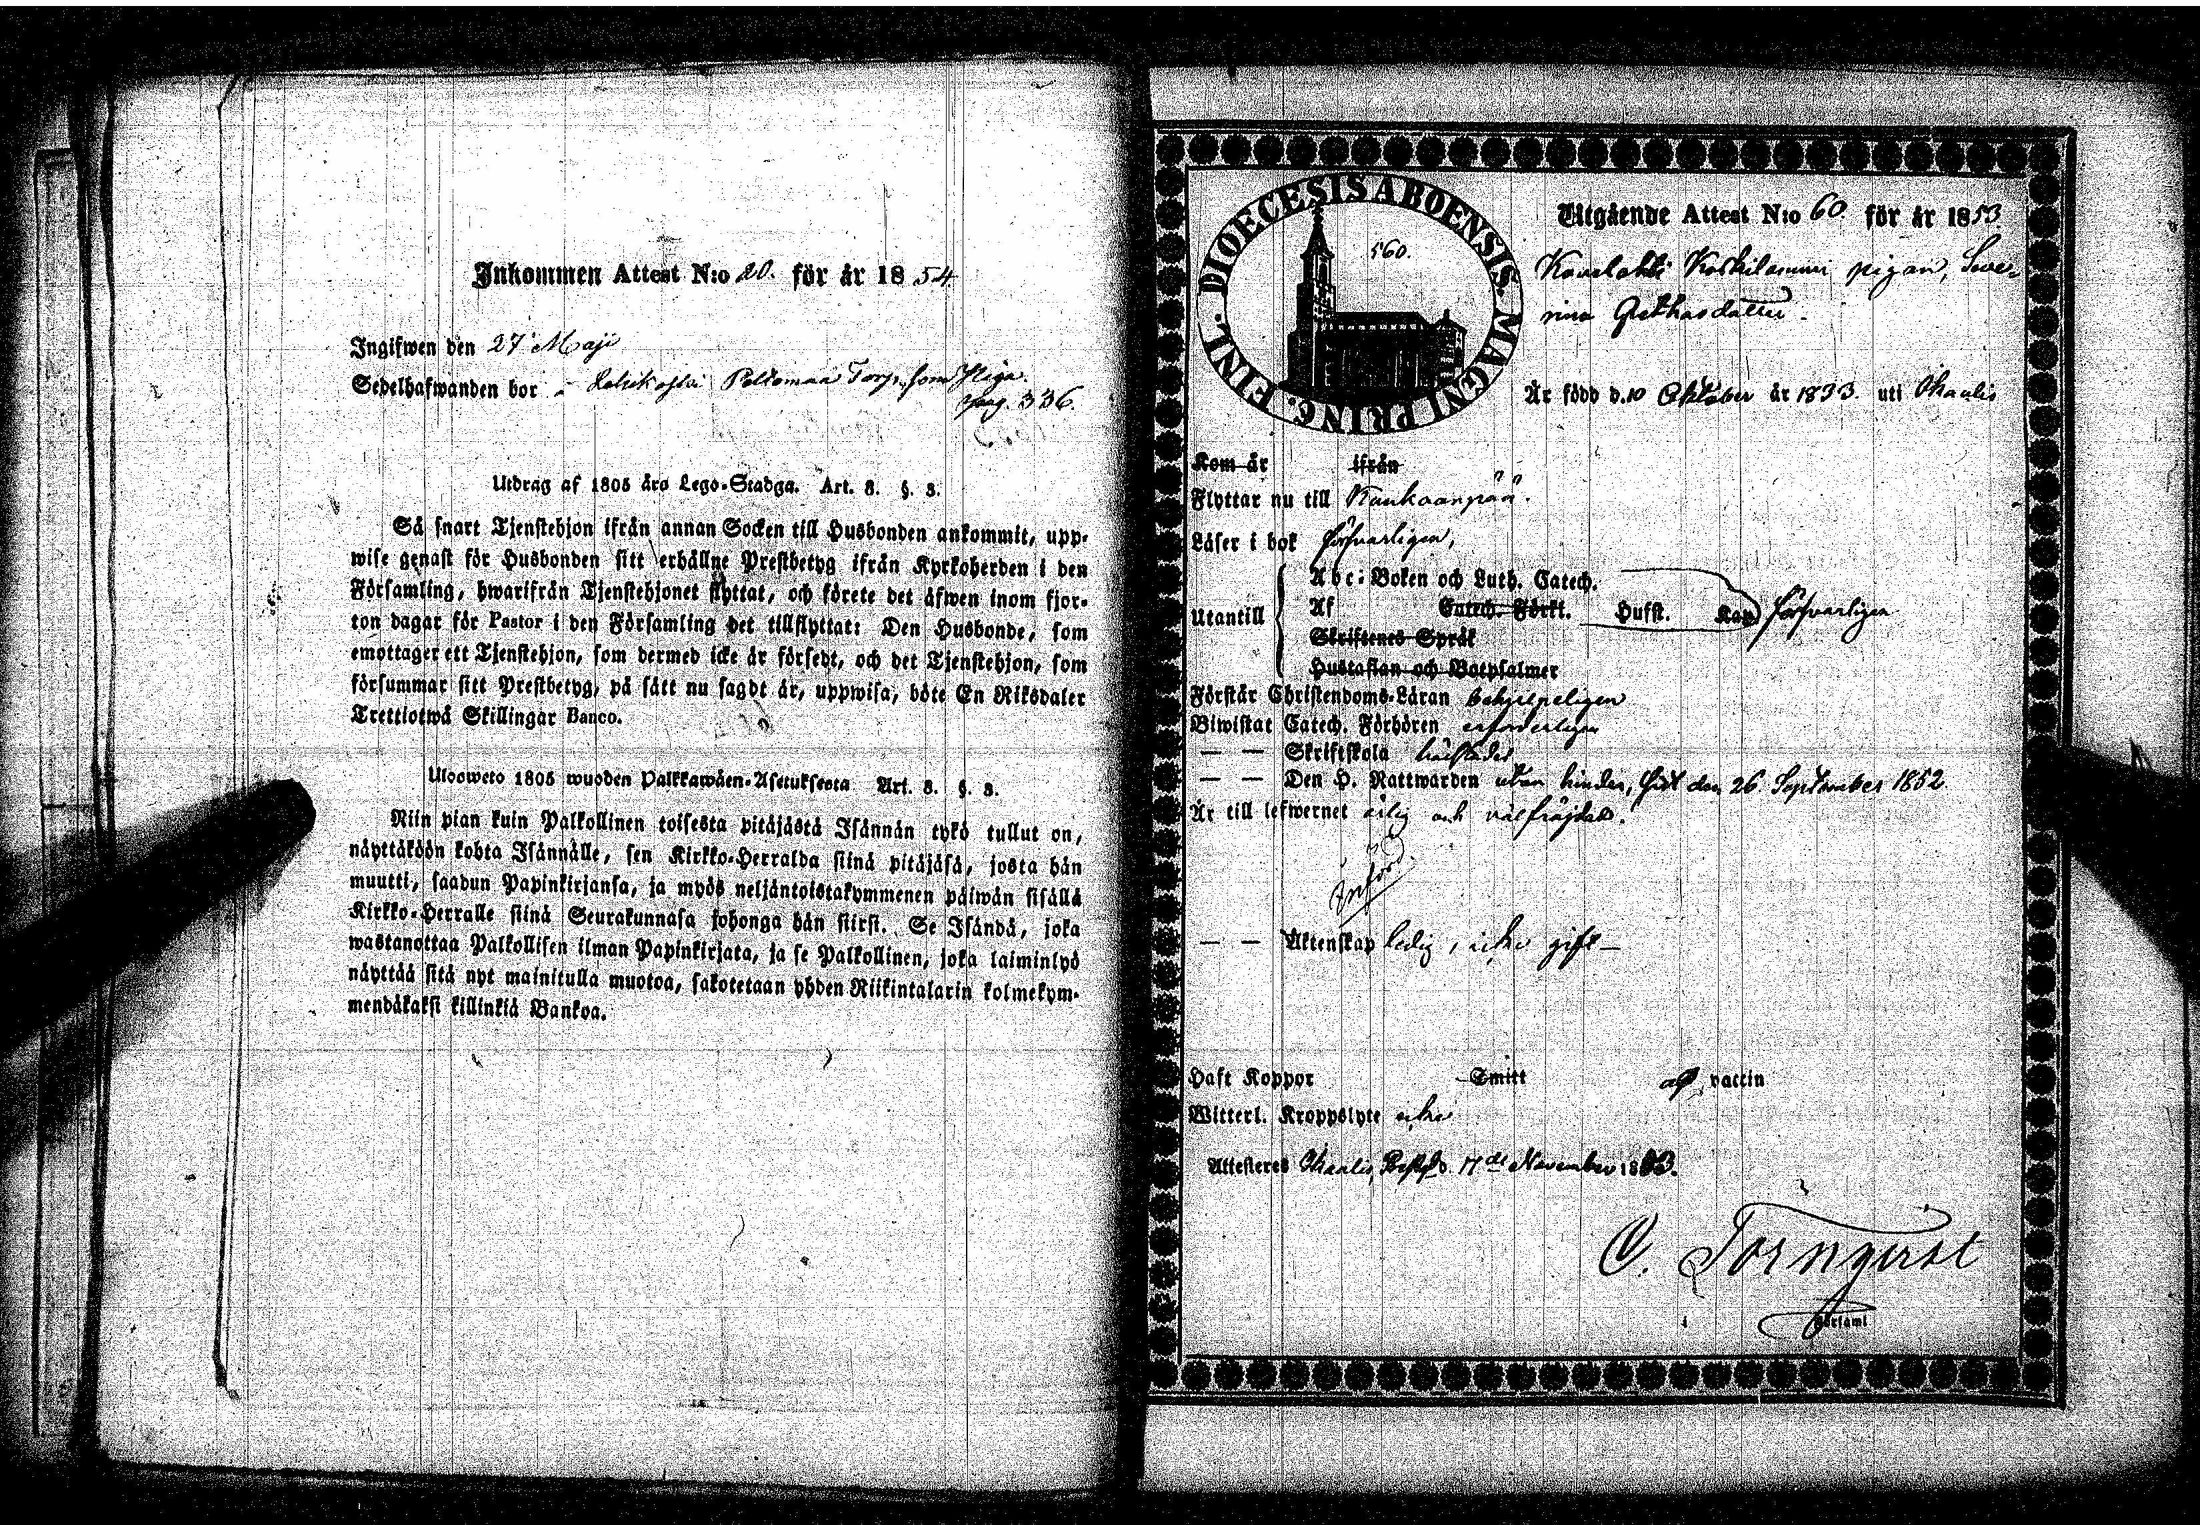 Inkommen Attest N:o 20. för år 1854
Ingifwen den 27 Maji
Sedelhafwanden bor - Poltomaa Torp, som Piga
pag. 336.
Utdrag af 1805 års Lego-Stadga. Art. 8. §. 3.
Så snart Tjenstehjon ifrån annan Socken till Husbonden ankommit, upp-
wise genast för Husbonden sitt erhållne Prestbetyg ifrån Kyrkoherden i den
Församling, hwarifrån Tjenstehjonet flyttat, och förete det äfwen inom fjor-
ton dagar för Pastor i den Församling det tillflyttat: Den Husbonde, som
emottager ett Tjenstehjon, som dermed icke är försedt, och det Tjenstehjon, som
försummar sitt Prestbetyg, på sått nu sagdt är, uppwisa, böte En Riksdaler
Trettiotwå Skillingar Banco.
Ulosweto 1805 wuoden Palkkawäen-Asetuksesta Art. 8. §. 3.
Niin pian kuin Palkollinen toisesta pitäjästä Isännän tykö tullut on,
näyttäköön kohta Isännälle, sen Kirkko-Herralda siinä pitäjäsä, josta hän
muutti, saadun Papinkirjansa, ja myös neljäntoistakymmenen päiwän sisällä
Kirkko-Herralle siinä Seurakunnasa johonga hän siirsi. Se Isändä, joka
wastanottaa Palkollisen ilman Papinkirjata, ja se Palkollinen, joka laiminlyö
näyttää sitä nyt mainitulla muotoa, sakotetaan yhden Riikintalarin kolmekym-
mendäkaksi killinkiä Bankoa.
DIOECESIS ABOENSIS. MAGNI PRINC. FINL.
560.
Utgående Attest N:o 60 för år 1853
Koskilammi pigan, Seve-
rina Grethasdotter.
Är född d. 10 Oktober år 1833. uti Thaulis
Kom år ifrån
Flyttar nu till Kankaanpää.
Läser i bok försvarligen,
Utantill
Abc-Boken och Luth. Catech.
Af Catech. Förkl. Hufst. Kap försvarligen
Skriftenes Språk
Hustaflan och Botpsalmer
Förstår Christendoms-Läran begripeligen
Biwistat Catech. Förhören erforderligen
— — Skriftskola
— — Den H. Nattwarden utan hinder, sist den 26 September 1852
Är till lefwernet ärlig och välfräjdad.
Införd
— — Äktenskap ledig, icke gift—
Haft Koppor Smitt af vaccin
Witterl. Kroppslyte icke
Attesteres Thaulis Prestg. d. 17de November 1853.
C. Törnqvist
i Församl